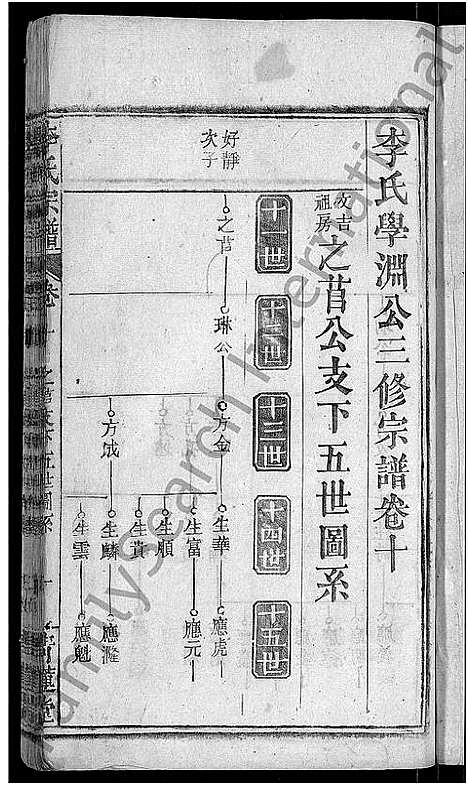 李氏學淵公三修宗譜卷十
文吉
祖房
之首公支下五世圖系
十一世
十二世
十三世
十四世
十五世
好靜
次子
之首
琳公
方金
生華
應虎
生富
應元
生順
生貴
方成
生麟
應瀧
生雲
應魁
李氏宗譜
卷十
之首支下五世圖系
青蓮堂
FamilySearch International